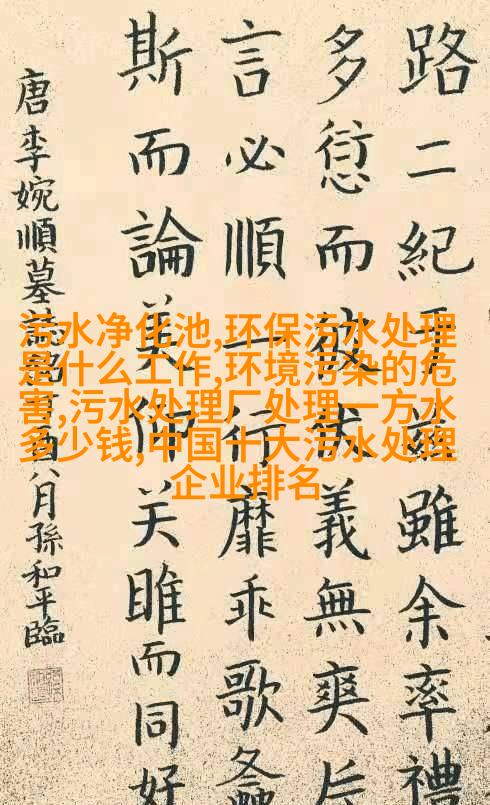 路二紀于茲雖余率禮
多愆而彼伏義無爽
言必順一行靡乖歌螽
斯而論美俯关雎而同好
唐李婉順墓誌酉八月孫和平臨
污水净化池,环保污水处理
是什么工作,环境污染的危
害,污水处理厂处理一方水
多少钱,中国十大污水处理
企业排名